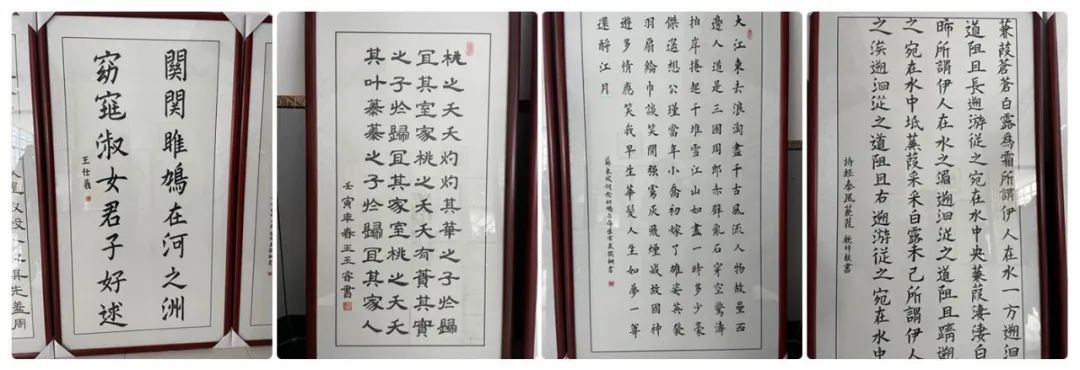 關關雎鳩在河之洲
窈窕淑女君子好逑
王仕
桃之夭夭灼灼其華之子於歸
宜其室家桃之夭夭有蕡其實
之子於歸宜其家室桃之夭夭
其叶蓁蓁之子於歸宜其家人
壬寅年春王玉睿書
大江東去浪淘盡千古風流人物故壘西
邊人道是三國周郎赤壁亂石穿空驚濤
拍岸捲起千堆雪江山如畫一時多少豪
傑遥想公瑾當年小喬初嫁了雄姿英發
羽扇綸巾談笑間強虜灰飛煙滅故國神
遊多情應笑我早生華髮人生如夢一尊
還酹江月
蒹葭蒼蒼白露爲霜所謂伊人在水一方遡洄
道阻且長遡游從之宛在水中央蒹葭淒淒白
晞所謂伊人在水之湄遡洄從之道阻且躋遡
之宛在水中坻蒹葭采采白露未已所謂伊人
之涘遡洄從之道阻且右遡游從之宛在水中
詩經秦風蒹葭